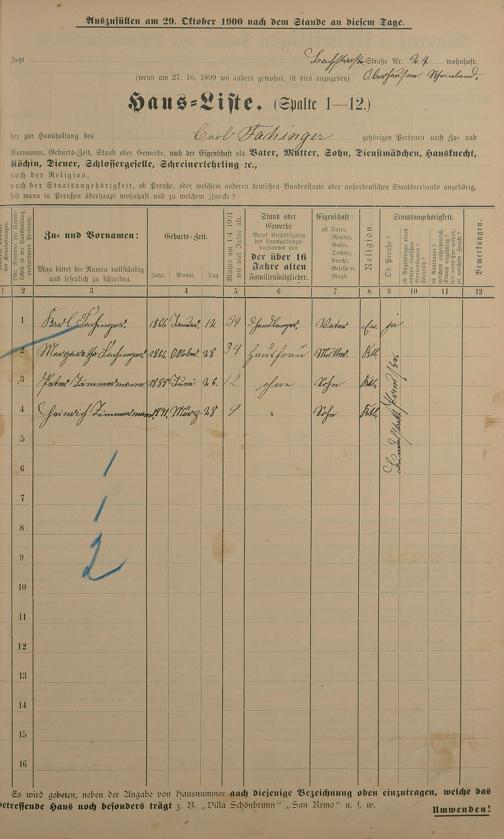 Auszufüllen am 29. Oktober 1900 nach dem Stande an diesem Tage.
Jetzt Bachstraße Straße Nr. 24 wohnhaft.
(wenn am 27. 10. 1899 wo anders gewohnt, ist dies anzugeben) Oberhausen Rheinland.
Haus-Liste. (Spalte 1—12.)
der zur Haushaltung des Carl Fachinger gehörigen Personen nach Zu- und
Vornamen, Geburts-Zeit, Stand oder Gewerbe, nach der Eigenschaft als Vater, Mutter, Sohn, Dienstmädchen, Hausknecht,
Köchin, Diener, Schlossergeselle, Schreinerlehrling ꝛc.,
nach der Religion,
nach der Staatsangehörigkeit, ob Preuße, oder welchem anderen deutschen Bundesstaate oder außerdeutschen Staatsverbande angehörig,
seit wann in Preußen überhaupt wohnhaft und zu welchem Zwecke?
Zu- und Vornamen:
Man bittet die Namen vollständig
und leserlich zu schreiben.
Geburts-Zeit.
Jahr. Monat. Tag.
Stand oder
Gewerbe
der über 16
Jahre alten
Familienmitglieder.
Eigenschaft:
ob Vater,
Mutter,
Sohn,
Tochter,
Knecht,
Geselle
Magd.
Religion.
Staatsangehörigkeit.
Ob Preuße?
Bemerkungen.
1 2 3 4 5 6 7 8 9 10 11 12
1 Karl Fachinger 1866 Januar 12 34 Vater Ev. ja
2 Margaretha Fachinger 1866 Oktober 28 34 Hausfrau Mutter Kth.
3 Peter Zimmermann 1888 Juni 26 12 ohne Sohn Kth.
4 Heinrich Zimmermann 1891 März 28 9 " Sohn Kth.
5
6
7
8
9
10
11
12
13
14
15
16
1
1
2
Es wird gebeten, neben der Angabe von Hausnummer auch diejenige Bezeichnung oben einzutragen, welche das
betreffende Haus noch besonders trägt z. B. „Villa Schönbrunn“ „San Remo“ u. s. w.
Umwenden!